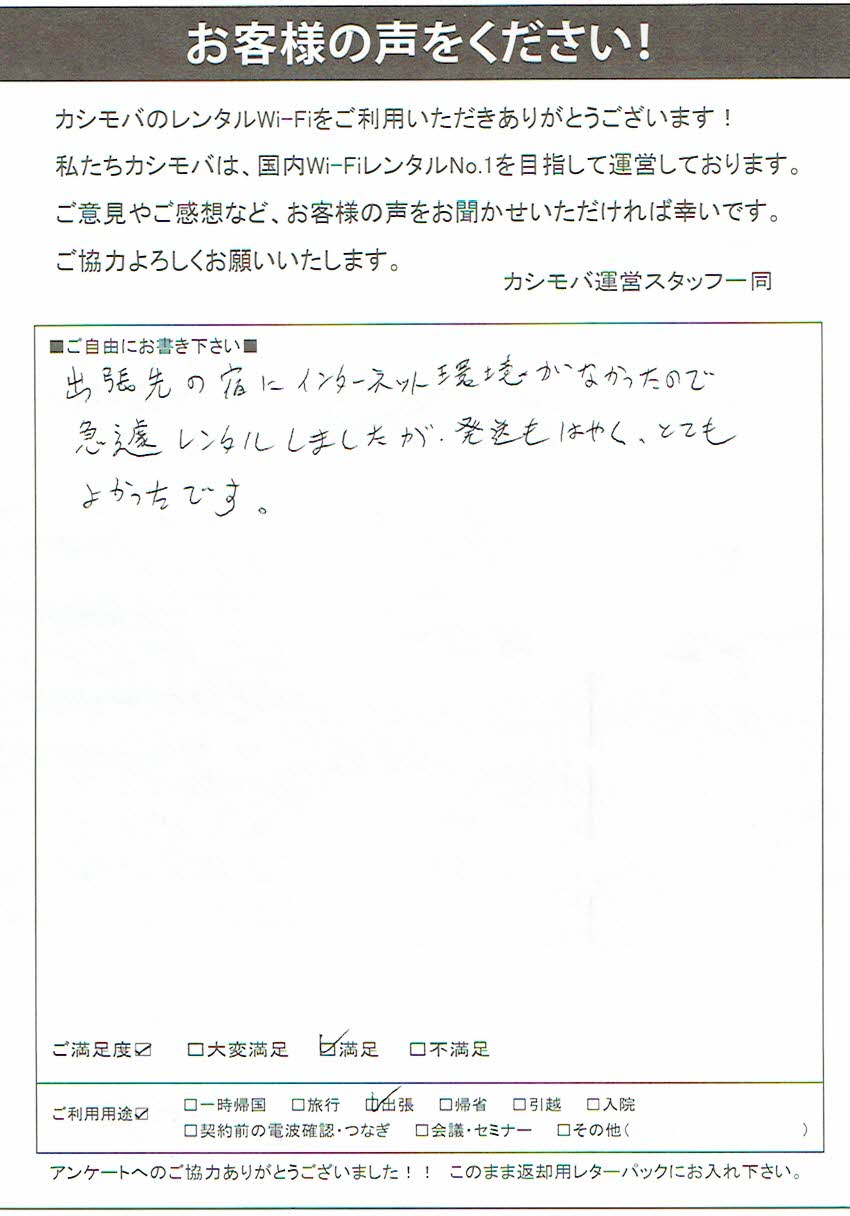 お客様の声をください!
カシモバのレンタルWi-Fiをご利用いただきありがとうございます!
私たちカシモバは、国内Wi-FiレンタルNo.1を目指して運営しております。
ご意見やご感想など、お客様の声をお聞かせいただければ幸いです。
ご協力よろしくお願いいたします。
カシモバ運営スタッフ一同
■ご自由にお書き下さい■
出張先の宿にインターネット環境がなかったので
急遽レンタルしましたが、発送もはやく、とても
よかったです。
ご満足度☑ □大変満足 ☑満足 □不満足
ご利用用途☑ □一時帰国 □旅行 ☑出張 □帰省 □引越 □入院
□契約前の電波確認・つなぎ □会議・セミナー □その他( )
アンケートへのご協力ありがとうございました!! このまま返却用レターパックにお入れ下さい。